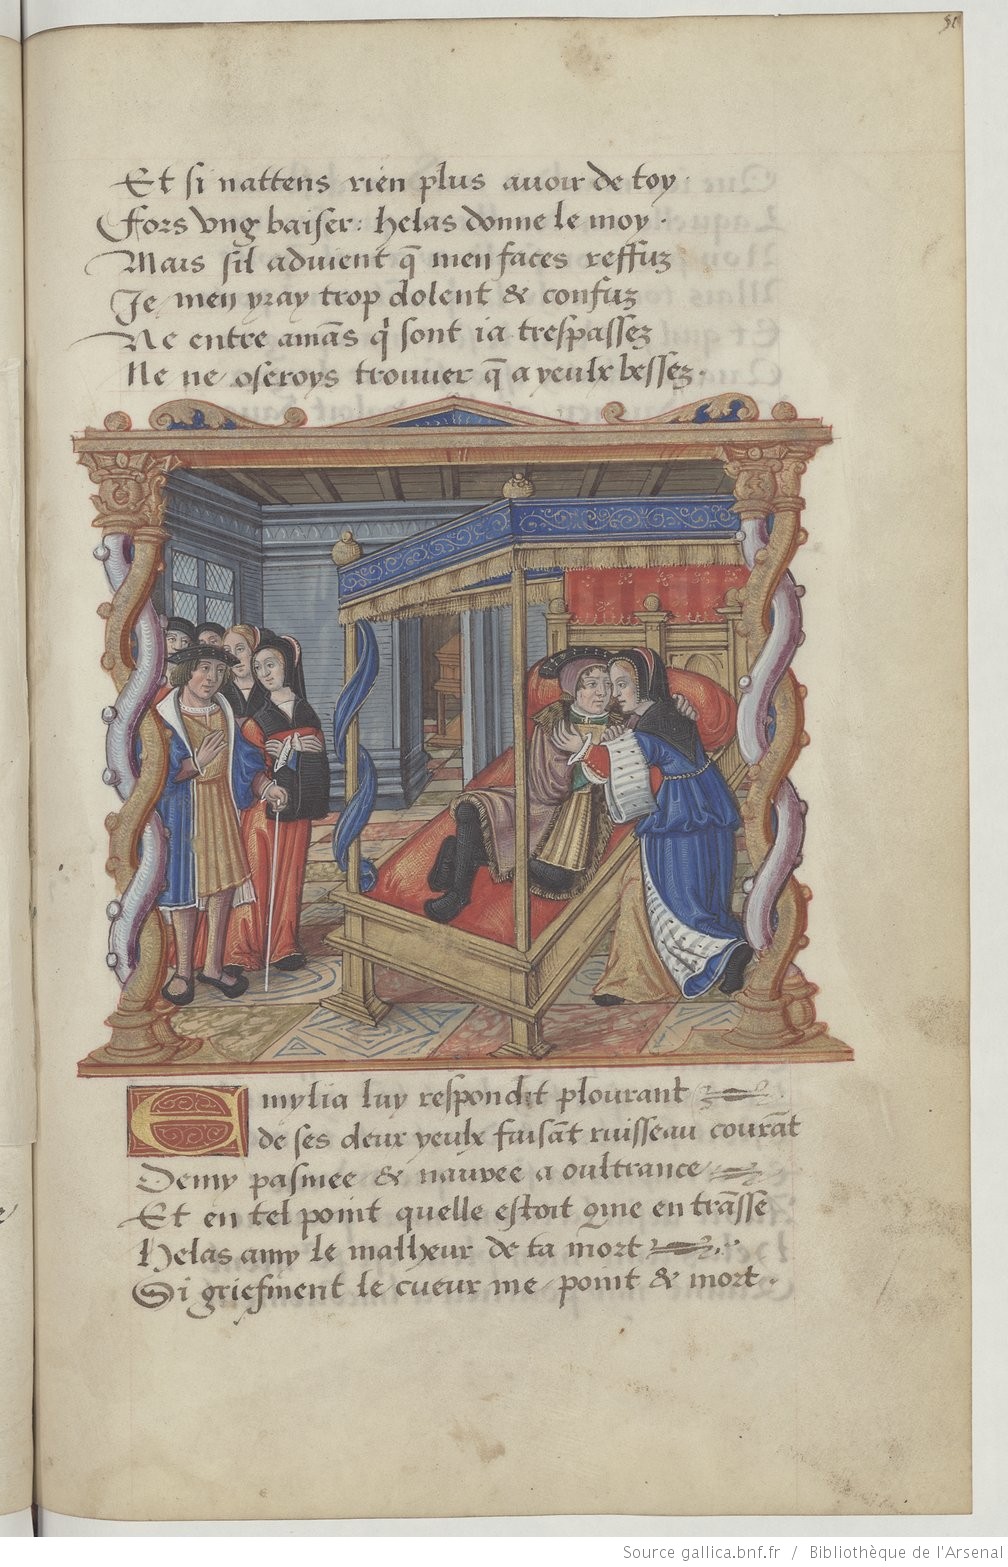 51
Et si nattens rien plus auoir de toy.
Fors vng baiser: helas donne le moy.
Mais sil aduient q̄ men faces reffuz
Je men yray trop dolent & confuz
Ne entre amās q̄ sont ia trespassez
Ne ne oseroys trouuer q̄ a yeulx bessez.
Emylia luy respondit plourant
de ses deux yeulx faisāt ruisseau courāt
Demy pasmee & nauree a oultrance
Et en tel point quelle estoit 9me en trāsse
Helas amy le malheur de ta mort
Si griefment le cueur me point & mort.
Source gallica.bnf.fr / Bibliothèque de l'Arsenal